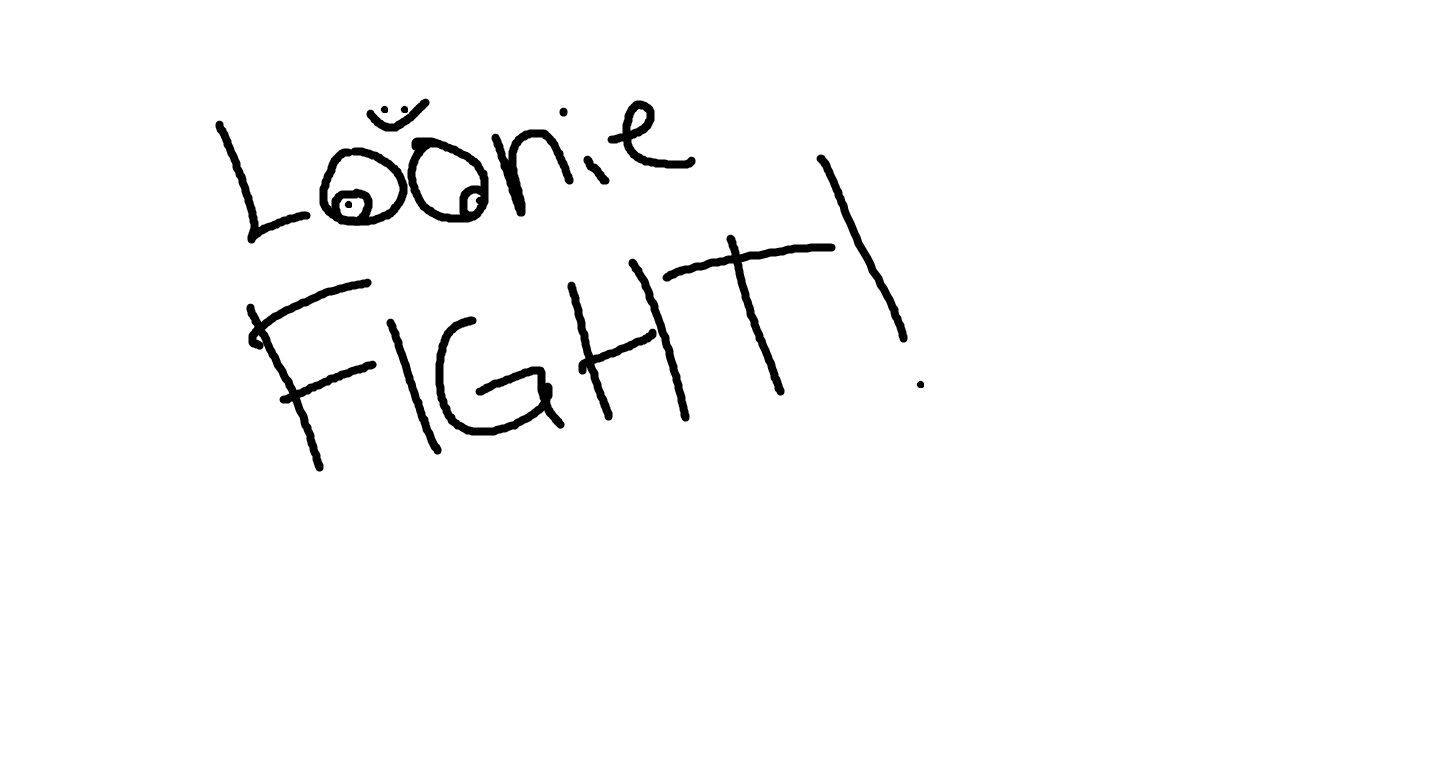 Loonie
FIGHT!